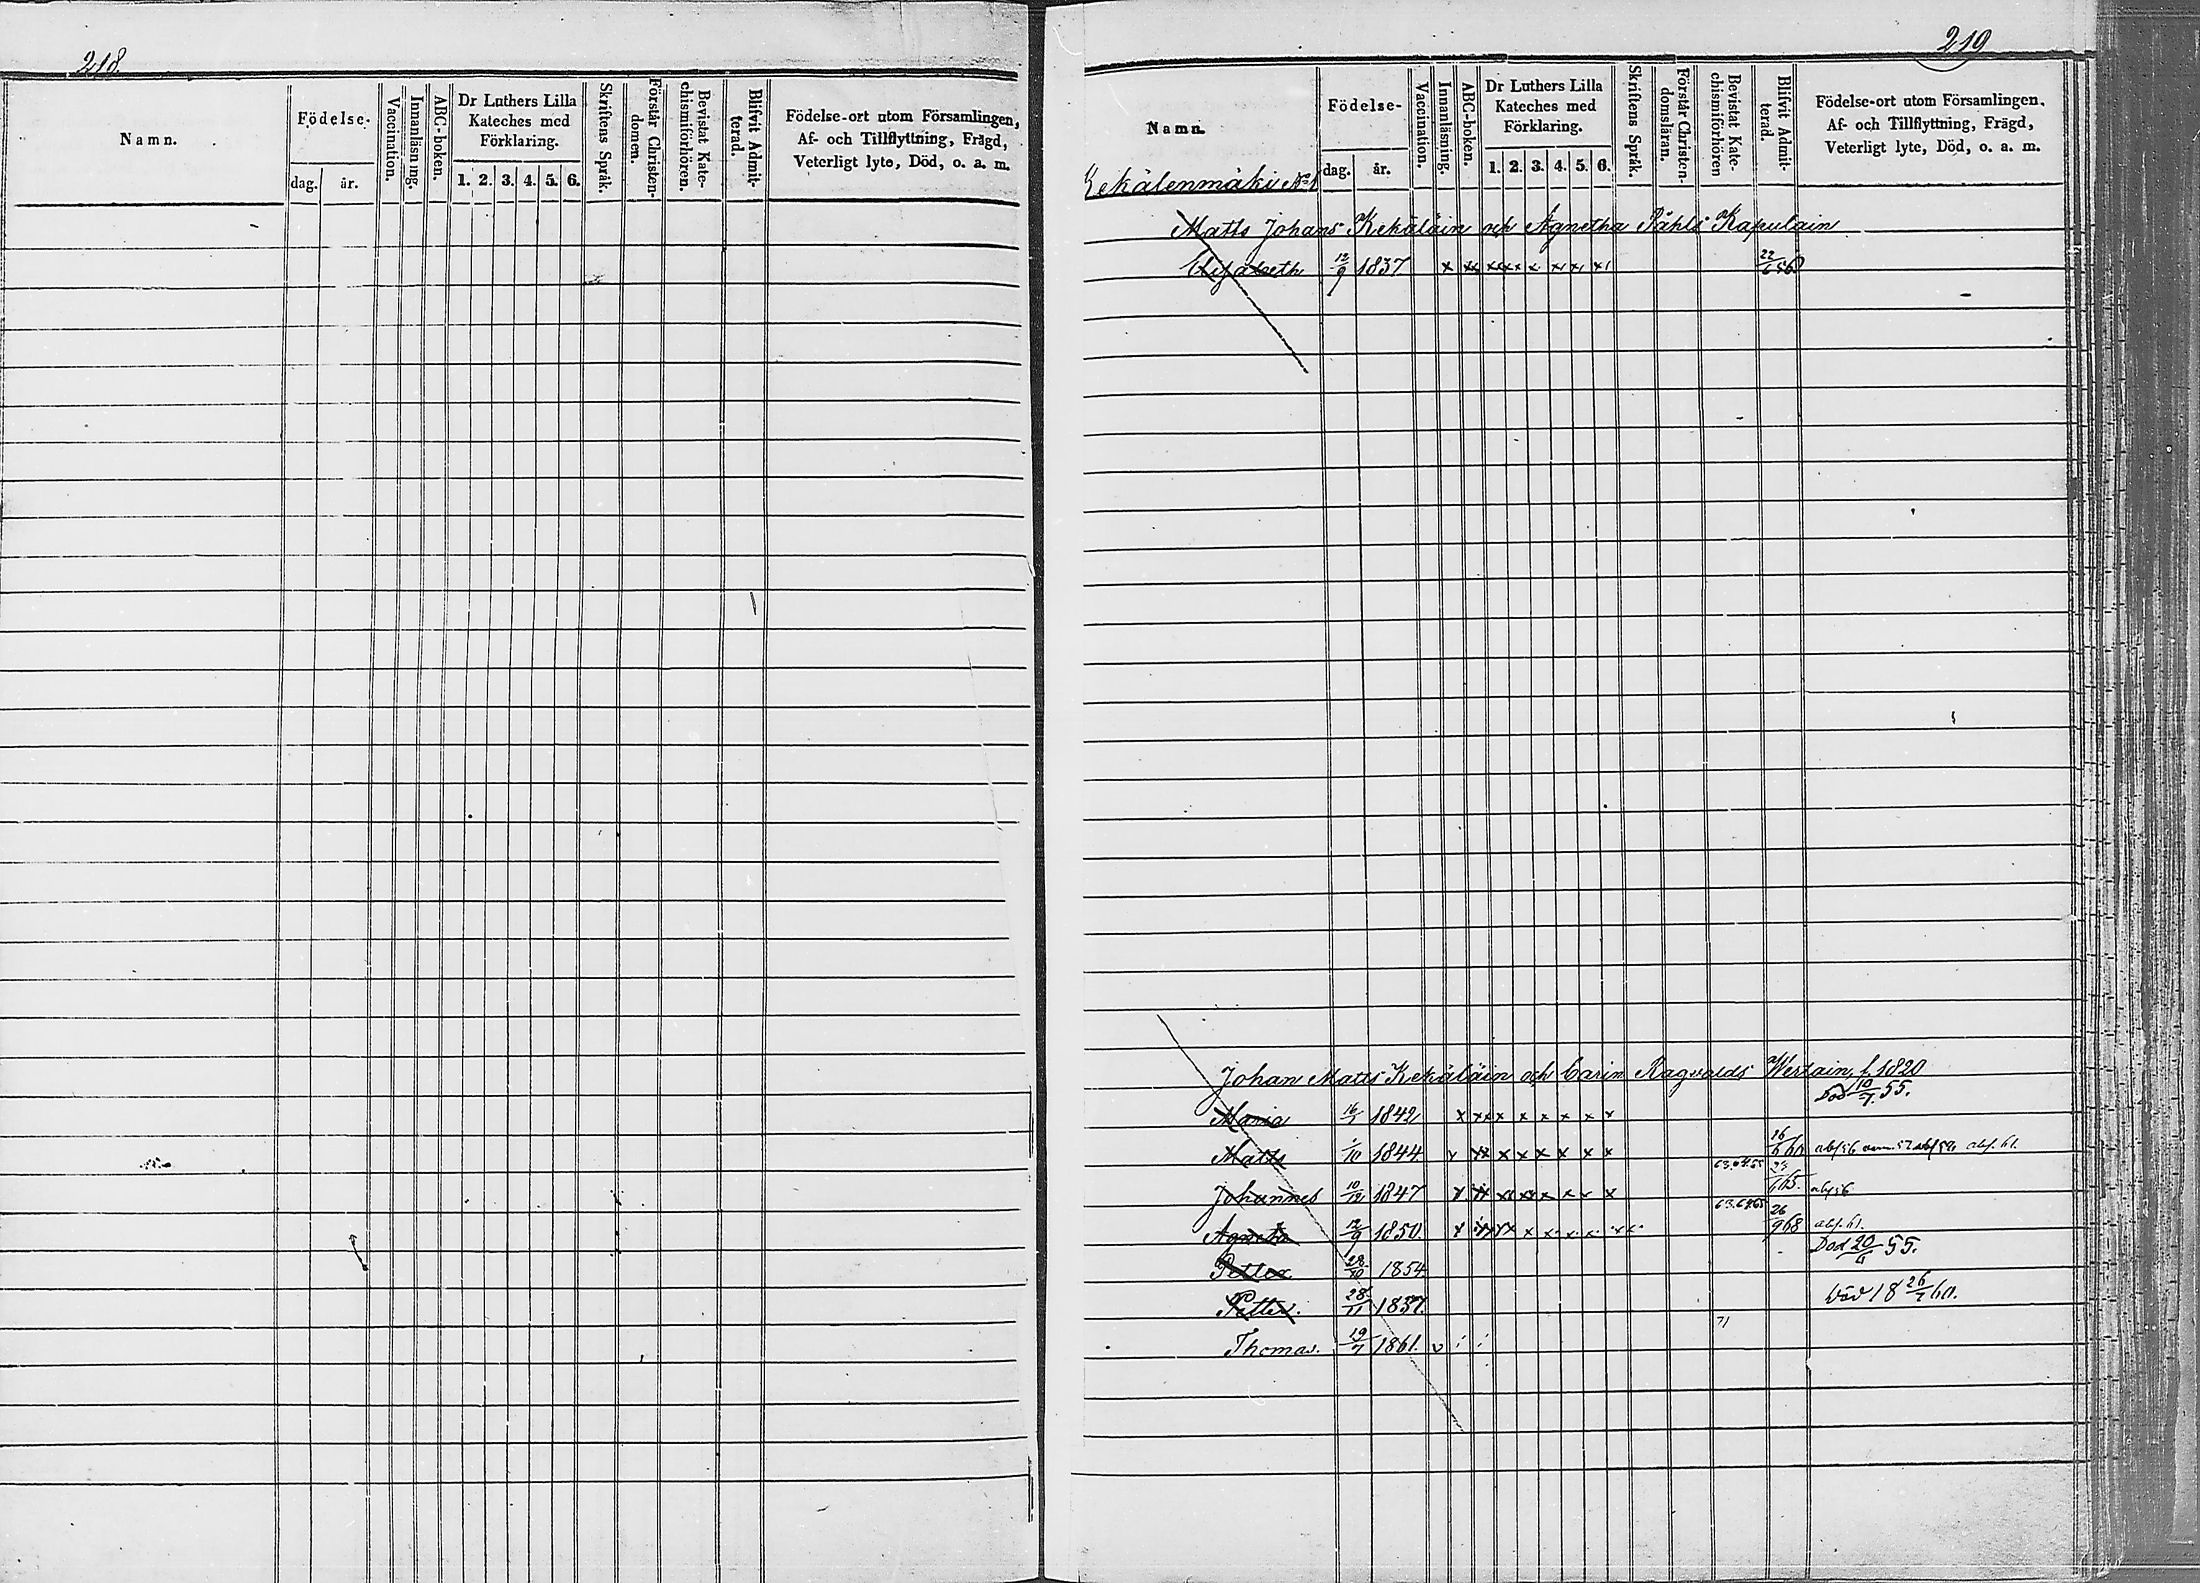 218.
Namn.
Födelse-
dag. år.
Vaccination.
Innanläsning.
ABC-boken.
Dr Luthers Lilla
Kateches med
Förklaring.
1. 2. 3. 4. 5. 6.
Skriftens Språk.
Förstår Christen-
domen.
Bevistat Kate-
chismiförhören.
Blifvit Admit-
terad.
Födelse-ort utom Församlingen,
Af- och Tillflyttning, Frägd,
Veterligt lyte, Död, o. a. m.
219
Namn.
Födelse-
dag. år.
Vaccination.
Innanläsning.
ABC-boken.
Dr Luthers Lilla
Kateches med
Förklaring.
1. 2. 3. 4. 5. 6.
Skriftens Språk.
Förstår Christen-
domsläran.
Bevistat Kate-
chismiförhören
Blifvit Admit-
terad.
Födelse-ort utom Församlingen.
Af- och Tillflyttning, Frägd,
Veterligt lyte, Död, o. a. m.
Kekälenmäki No 1
Matts Johans Kekäläin och Agnetha Påhls Kapulain
Elisabeth 12/9 1837 x xx xxxx x x x x 22/6 56
Johan Matts Kekäläin och Carin Ragvalds Wertain f. 1820
Maria 16/7 1842 x xxx x x x x x Död 10/7 55.
Matts 1/10 1844 v xx x x x x x x 26/6 60 abs. 61.
Johannes 10/12 1847 x x xx xx x x x 63. 64. 65 24/6 65. abs 56
Agneta 12/9 1850 63. 64. 65 26/9 68 abs. 61.
Petter 28/10 1854 Död 20/6 55.
Petter. 28/11 1857. Död 18 26/7 60.
Thomas. 19/7 1861. v 71